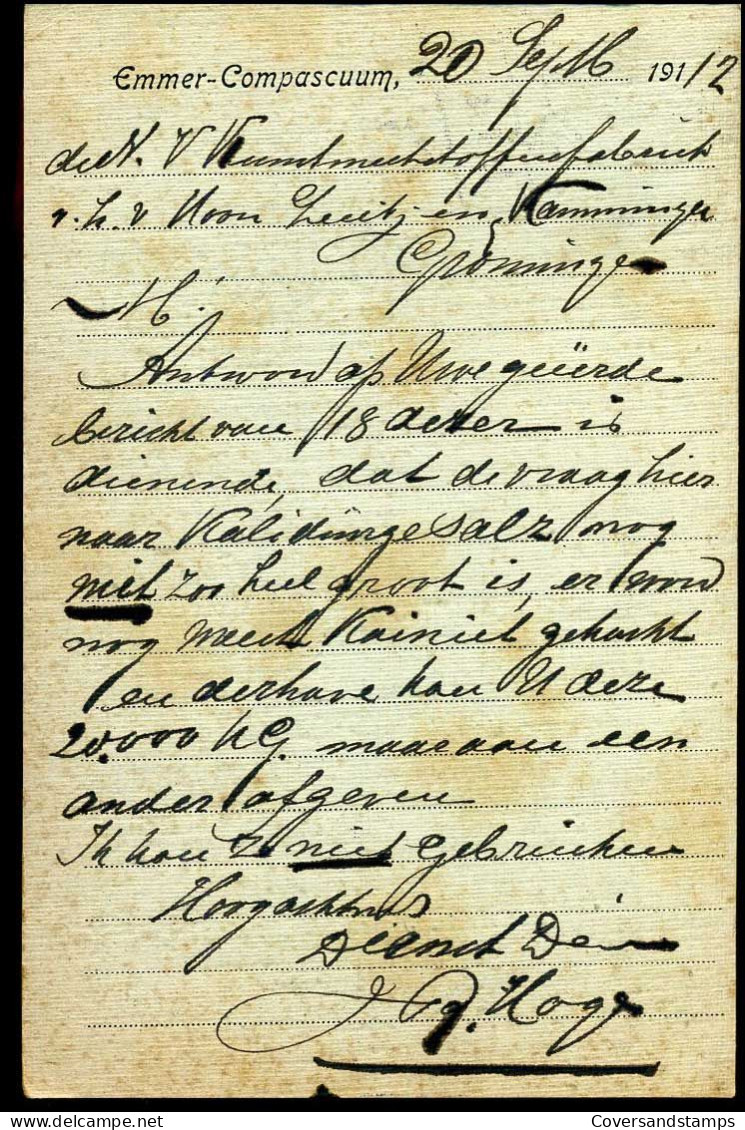 Emmer-Compascuum, 20 Sept 191 1/2
de N. V Kunstmeststoffenfabriek
v. h. v Hoorn Luitj en Kamminga
Groningen
M.
Antword op Uwe geëerde
bericht van 18 dezer is
dienende, dat de vraag hier
naar Kalidüngesalz nog
niet zoo heel groot is, er word
nog meest Kainiet gekocht
en derhave kan U deze
20.000 KG. maar aan een
ander afgeven
Ik kan ze niet gebruiken
Hoogachtend
Dienst Dew
J Hoge
Coversandstamps